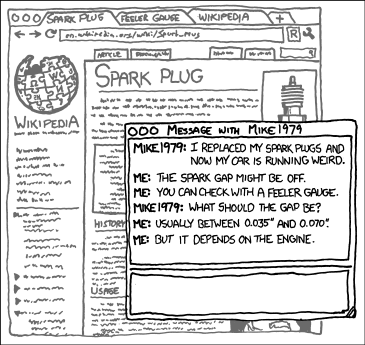 SPARK PLUG
FEELER GAUGE
WIKIPEDIA
+
en.wikipedia.org/wiki/Spark_plug
R
ARTICLE
SPARK PLUG
WIKIPEDIA
HISTORY
USAGE
MESSAGE WITH MIKE1979
MIKE1979: I REPLACED MY SPARK PLUGS AND
NOW MY CAR IS RUNNING WEIRD.
ME: THE SPARK GAP MIGHT BE OFF.
ME: YOU CAN CHECK WITH A FEELER GAUGE.
MIKE1979: WHAT SHOULD THE GAP BE?
ME: USUALLY BETWEEN 0.035" AND 0.070".
ME: BUT IT DEPENDS ON THE ENGINE.